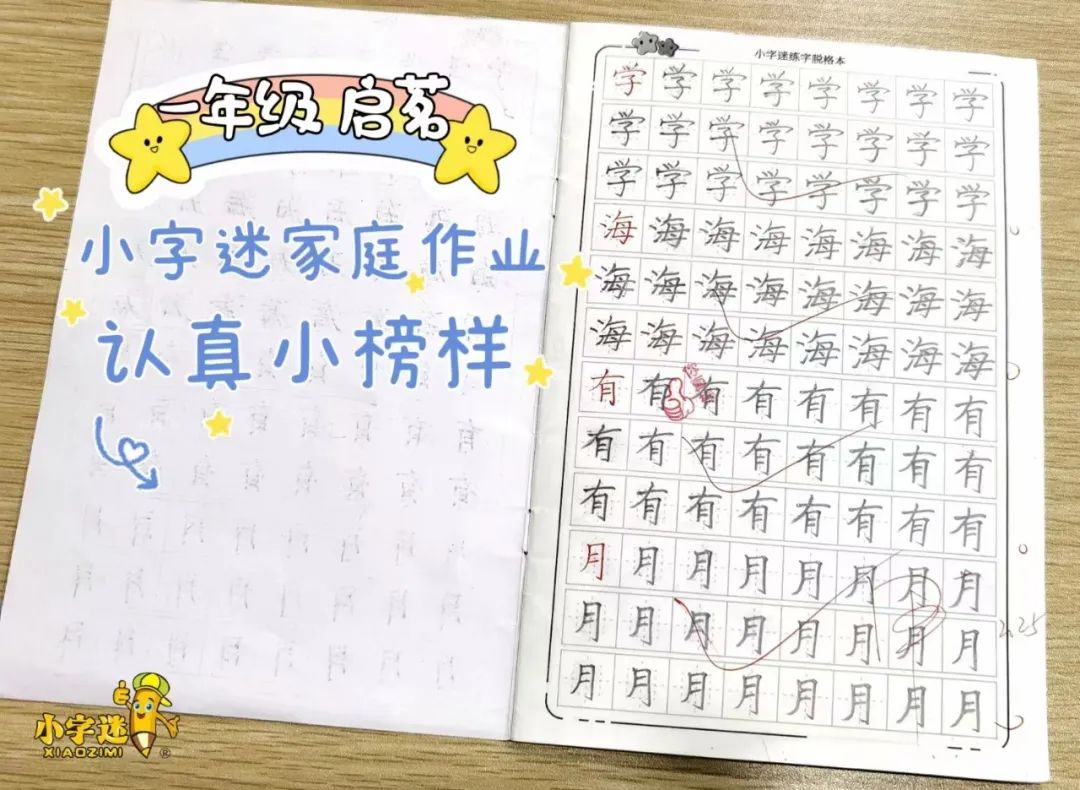 一年级 启茗
小字迷家庭作业
认真小榜样
小字迷
XIAOZIMI
®
小字迷练字脱格本
学学学学学学学学
学学学学学学学学
学学学学学学学学
海海海海海海海海
海海海海海海海海
海海海海海海海海
有有有有有有有有
有有有有有有有有
有有有有有有有有
月月月月月月月月
月月月月月月月月
2.25
月月月月月月月月